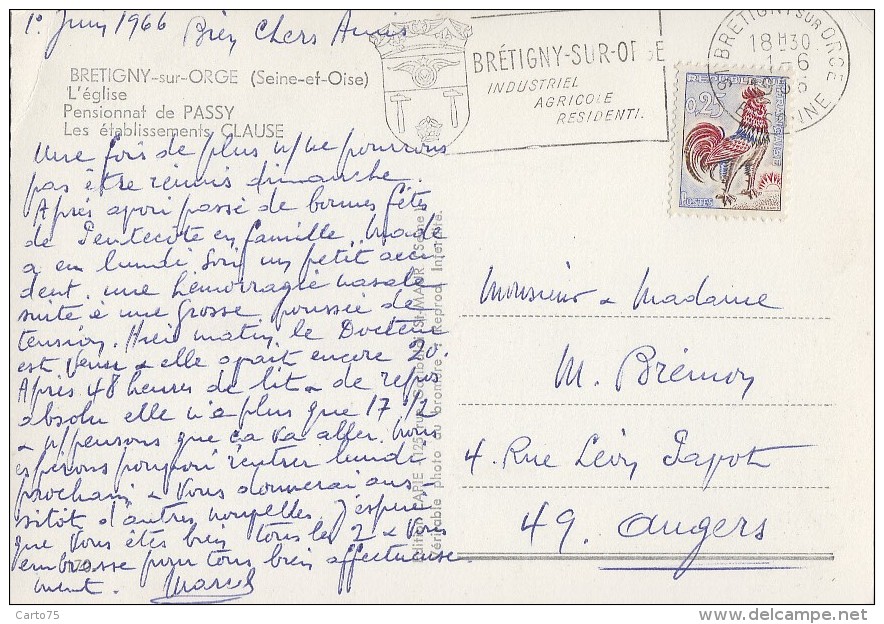 1er Juin 1966
Bien Chers Amis
BRETIGNY-sur-ORGE (Seine-et-Oise)
L'église
Pensionnat de PASSY
Les établissements CLAUSE
Une fois de plus n/ne pourrons
pas être réunis dimanche.
Après avoir passé de bonnes fêtes
de Pentecôte en famille, Made
a eu lundi soir un petit acci
dent, une hémorragie nasale
suite à une grosse poussée de
tension. Hier matin, le Docteur
est venu & elle avait encore 20.
Après 48 heures de lit & de repos
absolu elle n'a plus que 17 1/2
& n/pensons que ça va aller. Nous
espérons pouvoir rentrer lundi
prochain & vous donnerai aus-
sitôt d'autres nouvelles. J'espère
que vous êtes bien tous les 2 & vous
embrasse pour tous bien affectueuse
ment. Marcel
BRÉTIGNY-SUR-ORGE
INDUSTRIEL
AGRICOLE
RESIDENTI.
BRETIGNY SUR ORGE
18H30
1-6
REPUBLIQUE FRANÇAISE
0,25
POSTES
Monsieur & Madame
M. Brémoy
4. Rue Léon Papot
49. Angers
Véritable photo au bromure - Reprod. Interdite.
Carto75
delcampe.net